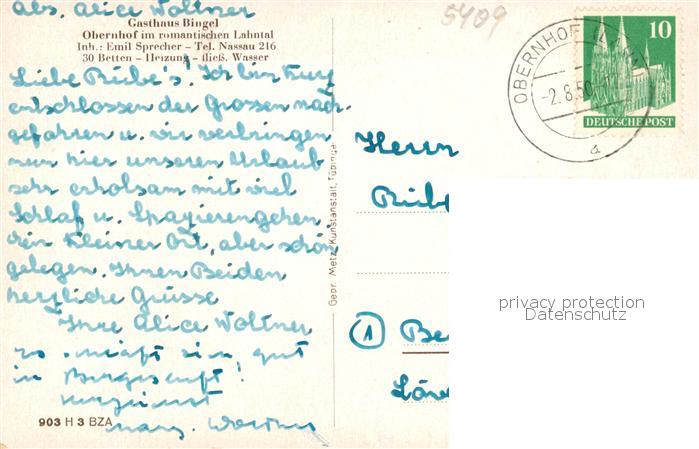 Abs. Alice Woltner
Gasthaus Bingel
Obernhof im romantischen Lahntal
Inh.: Emil Sprecher – Tel. Nassau 216
30 Betten – Heizung – fließ. Wasser
Liebe Rübe's! Ich bin kurz
entschlossen der Grossen nach-
gefahren u. wir verbringen
nun hier unseren Urlaub
sehr erholsam mit viel
Schlaf u. Spazierengehen.
Ein kleiner Ort, aber schön
gelegen. Ihnen Beiden
herzliche Grüsse
Ihre Alice Woltner
gut
in
903 H 3 BZA
Gepr. Metz, Kunstanstalt, Tübingen
5409
OBERNHOF (LAHN)
-2.8.50
a
10
DEUTSCHE POST
Herrn
Rübe
(1) Be
privacy protection
Datenschutz